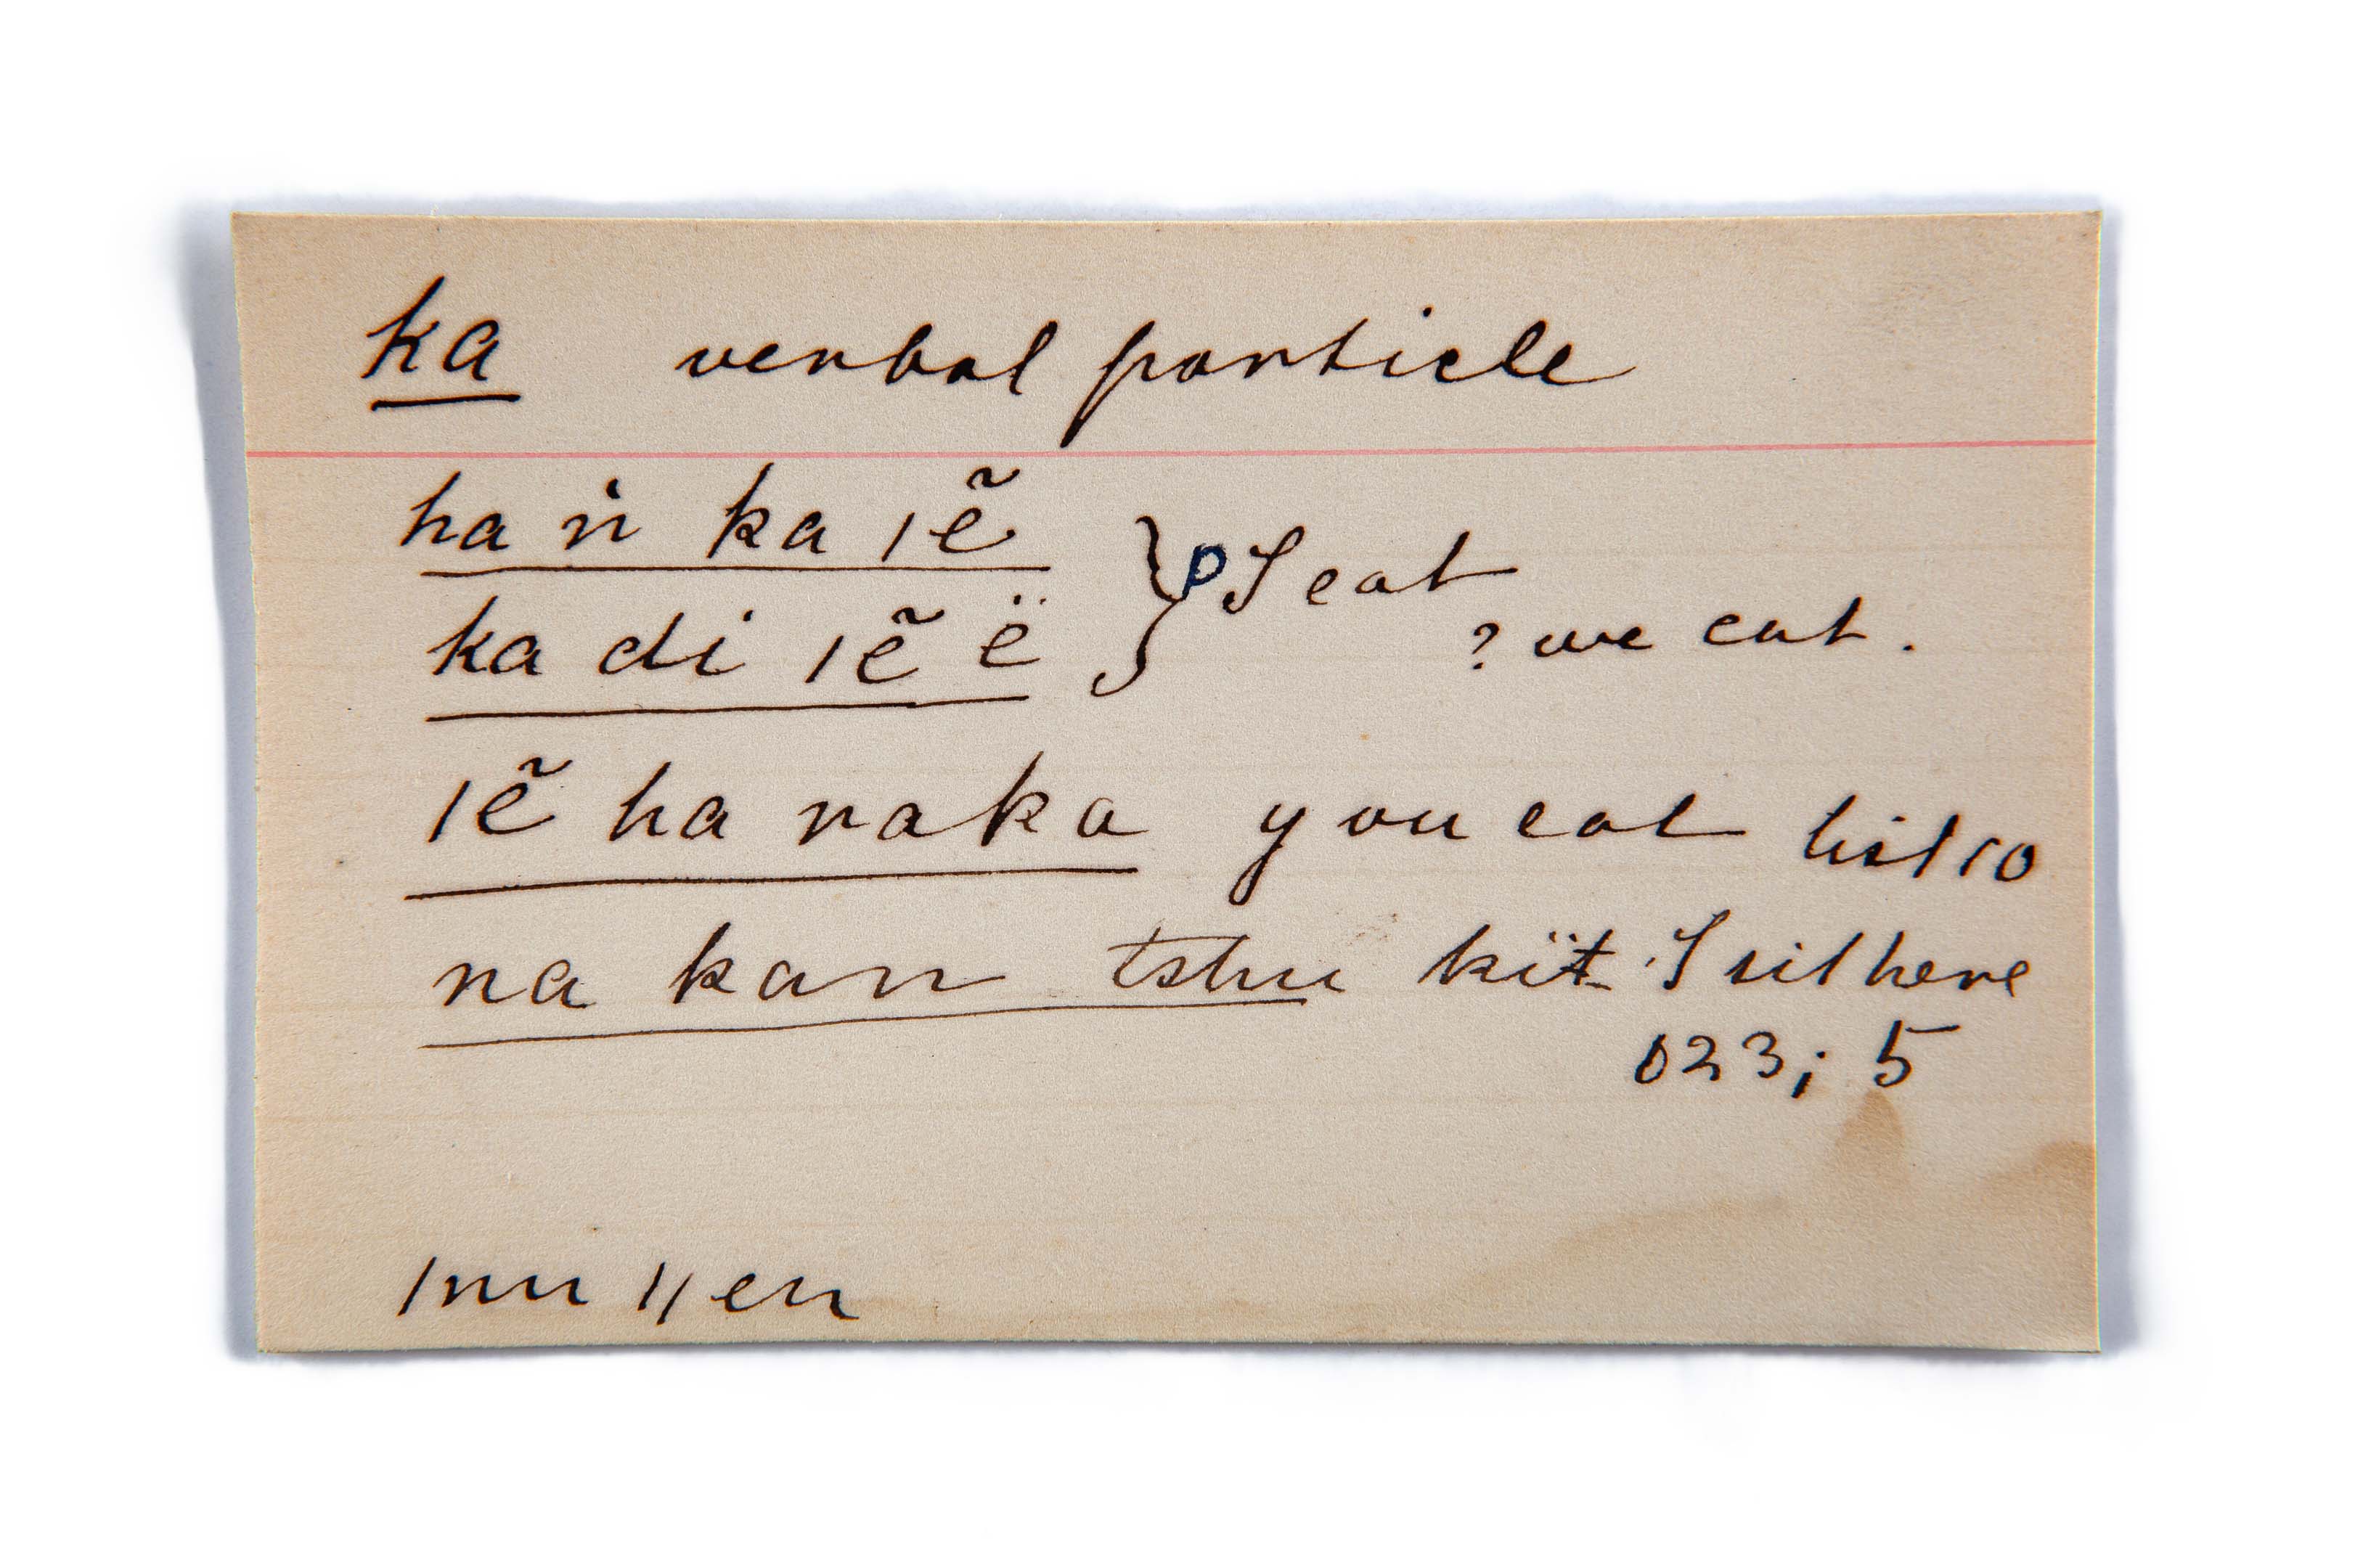 ka verbal particle
ha ṅ ka ıẽ } p I eat
ka di ıẽ ë ? we eat.
ıẽ ha naka you eat list 10
na kan tshu kït I sit here
023; 5